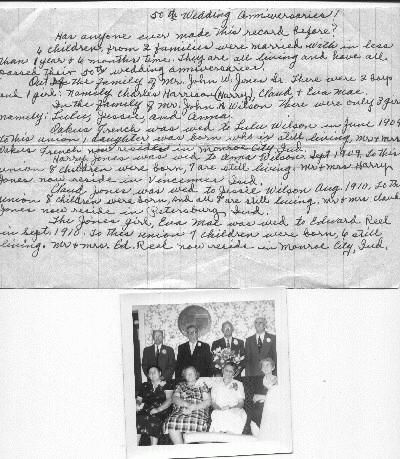 50th Wedding Anniversaries!
Has anyone ever made this record before?
6 children from 2 families were married with in less
than 1 year & 6 months time. They are all living and have all
passed their 50th wedding anniversaries.
Out of the Family of Mr. John W. Jones Sr. There were 2 boys
and 1 girl. Namely Charles Harrison (Harry), Claud & Eva Mae.
In the Family of Mr. John A Wilson there were only 3 girls
namely: Lulu, Jessie, and Anna.
Oakus French was wed to Lulu Wilson in June 1909
to this union, 1 daughter was born who is still living. Mr & Mrs
Oakus French now reside in Monroe City, Ind.
Harry Jones was wed to Anna Wilson Sept 1909. To this
union 8 children were born, 7 are still living. Mr & Mrs Harry
Jones now reside in Vincennes Ind.
Claud Jones was wed to Jessie Wilson Aug. 1910. To this
union 8 children were born, and all 8 are still living. Mr & Mrs. Claud
Jones now reside in Petersburg, Ind.
The Jones girl, Eva Mae was wed to Edward Reel
in Sept. 1910. To this union 7 children were born, 6 still
living. Mr & Mrs. Ed. Reel now reside in Monroe City, Ind.